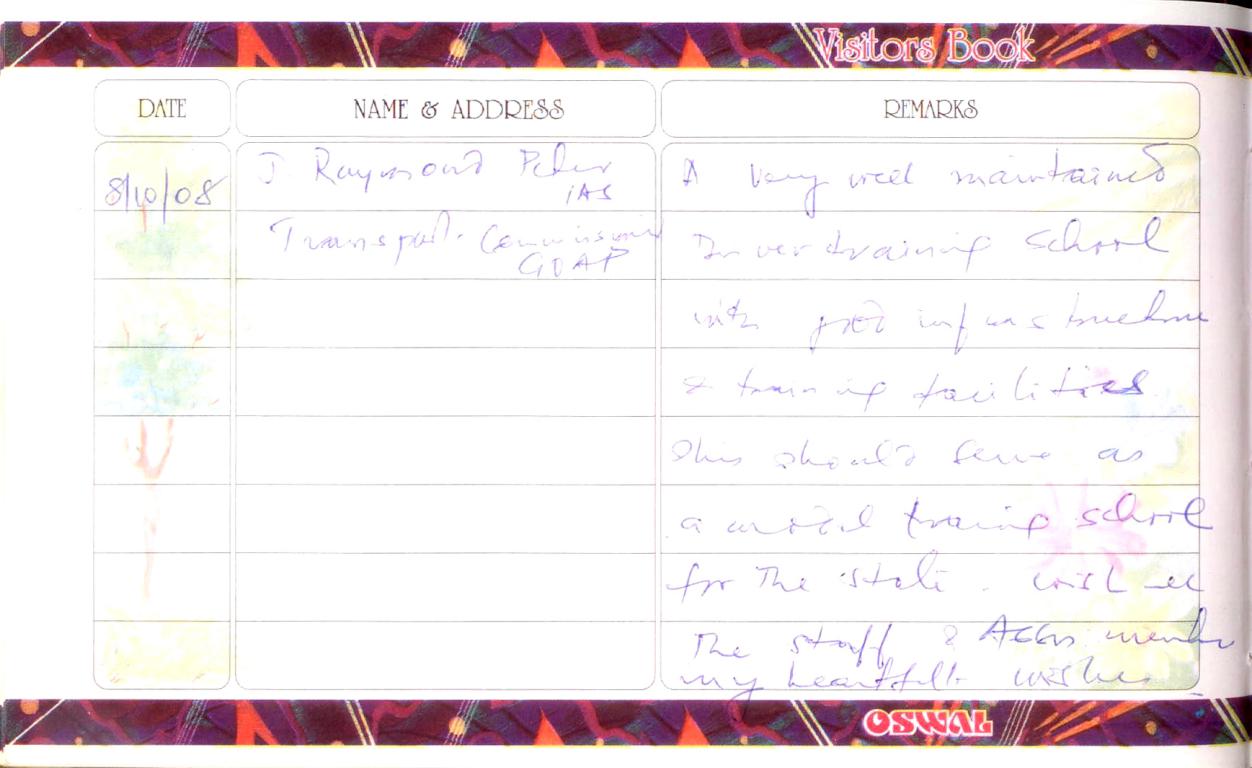 Visitors Book
DATE
NAME & ADDRESS
REMARKS
8/10/08
J. Raymond Peter
IAS
Transport Commissioner
GOAP
A very well maintained
Driver training School
with good infrastructure
& training facilities
This should serve as
a model training school
for the state. wish all
The staff & Assn members
my heartfelt wishes
OSWAL